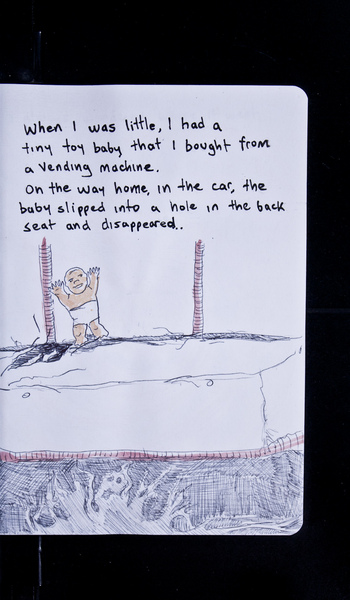 When I was little, I had a
tiny toy baby that I bought from
a vending machine.
On the way home, in the car, the
baby slipped into a hole in the back
seat and disappeared..